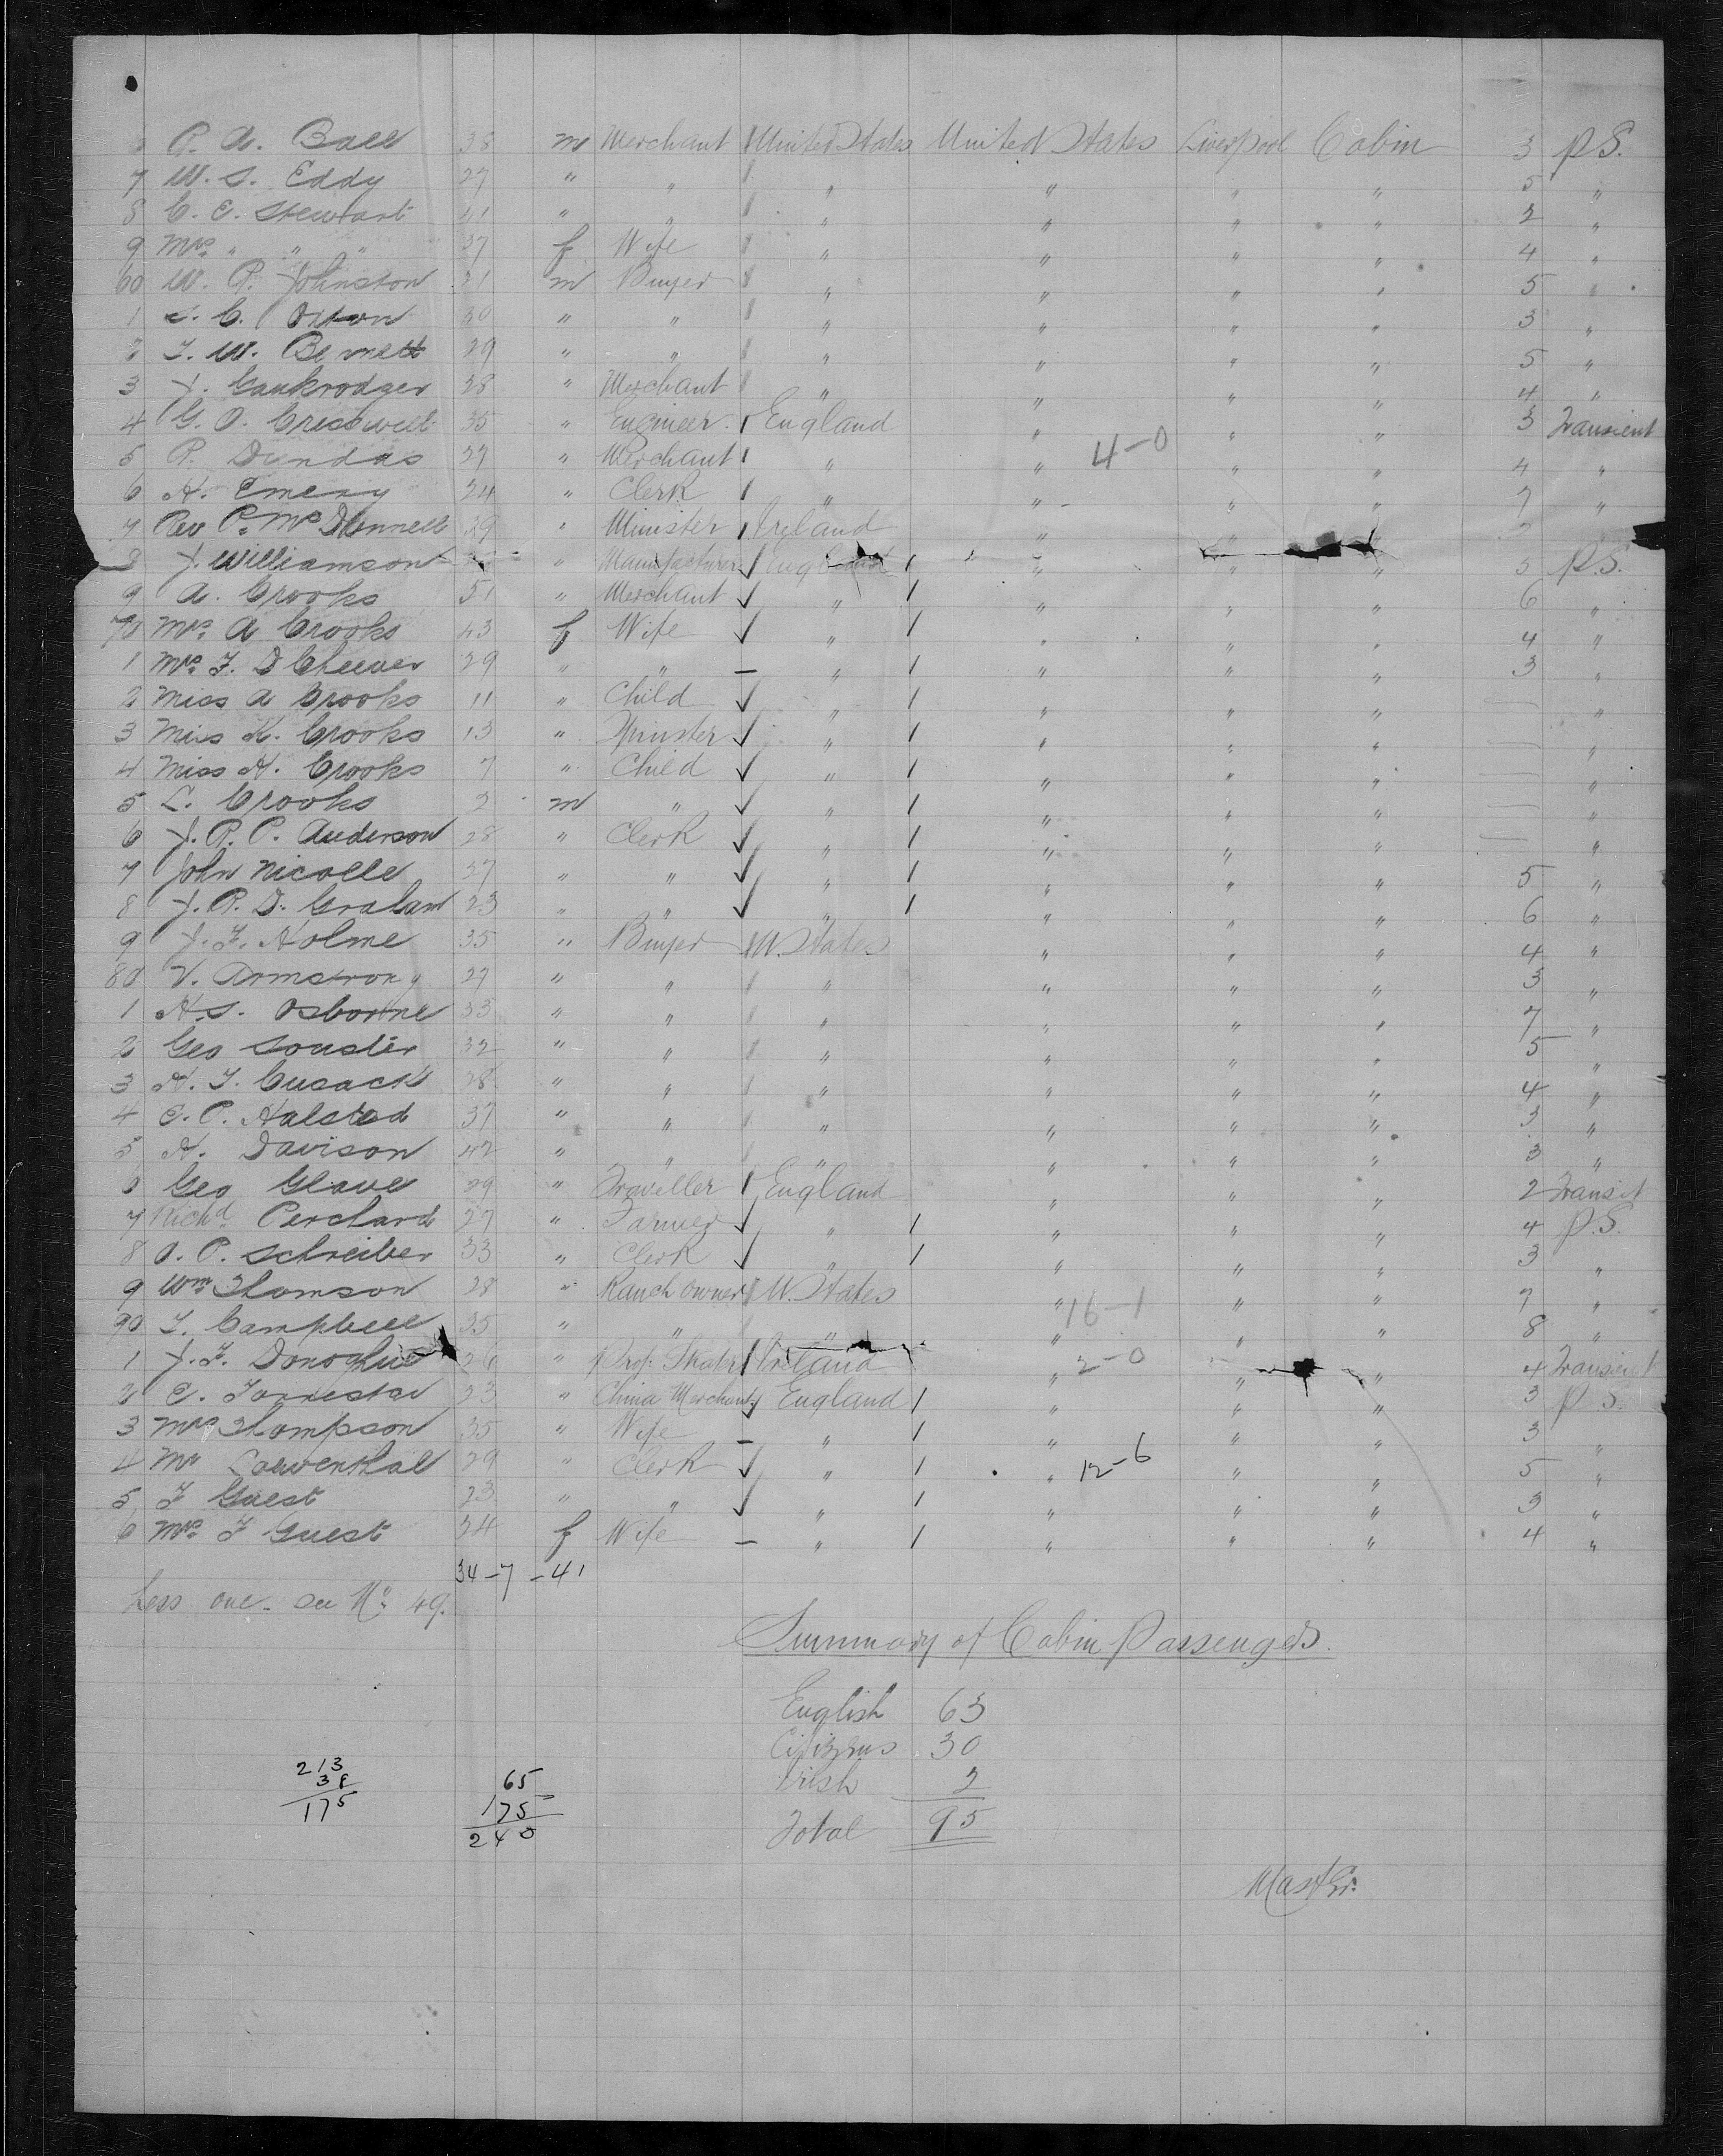 P. A. Ball 38 m Merchant United States United States Liverpool Cabin 3 P.S.
7 W. S. Eddy 27 " " " " " " 5 "
8 C. E. Stewart 41 " " " " " " 2 "
9 Mrs " " " 37 f Wife " " " " 4 "
60 W. P. Johnston 31 m Buyer " " " " 5 "
1 S. C. Dixon 30 " " " " " " 3 "
2 T. W. Bennett 29 " " " " " " 5 "
3 J. Cankrodger 38 " Merchant " " " " 4 "
4 G. O. Cresswell 35 " Engineer England " " " 3 Transient
5 P. Dundas 27 " Merchant " " 4-0 " " 4 "
6 H. Emery 24 " Clerk " " " " 7 "
7 Rev P. McDonnell 39 " Minister Ireland " " "
8 J. Williamson " Manufacturer England " " " 3 P.S.
9 A. Crooks 51 " Merchant " " " " 6 "
70 Mrs A Crooks 43 f Wife " " " " 4 "
1 Mrs F. D Cheever 29 " " " " " " 3 "
2 Miss A Crooks 11 " Child " " " " — "
3 Miss K. Crooks 13 " Spinster " " " " — "
4 Miss H. Crooks 7 " Child " " " " — "
5 L. Crooks 2 m " " " " " — "
6 J. R. P. Anderson 28 " Clerk " " " " — "
7 John Nicolle 37 " " " " " " 5 "
8 J. R. D. Graham 23 " " " " " " 6 "
9 J. F. Holme 35 " Buyer U. States " " " 4 "
80 V. Armstrong 27 " " " " " " 3 "
1 H. S. Osborne 33 " " " " " " 7 "
2 Geo Souster 32 " " " " " " 5 "
3 H. T. Cusack 28 " " " " " " 4 "
4 E. P. Halsted 37 " " " " " " 3 "
5 H. Davison 42 " " " " " " 3 "
6 Geo Glave 29 " Traveller England " " " 2 Transit
7 Richd Perchard 27 " Farmer " " " " 4 P.S.
8 O. P. Schreiber 33 " Clerk " " " " 3 "
9 Wm Thomson 28 " Ranch owner U. States " 16-1 " " 7 "
90 T. Campbell 35 " " " " " " 8 "
1 J. F. Donoghue 26 " Prof. Skater Ireland " 2-0 " " 4 Transient
2 E. Forrestar 23 " China Merchant England " " " 3 P.S.
3 Mrs Thompson 35 " Wife " " " " 3 "
4 Mr Loewenthal 29 " Clerk " " 12-6 " " 5 "
5 F Guest 23 " " " " " " 3 "
6 Mrs F Guest 24 f Wife " " " " 4 "
34-7-41
Less one. See No. 49.
Summary of Cabin Passengers.
English 63
Citizens 30
Irish 2
Total 95
213
38
175
65
175
240
Master.